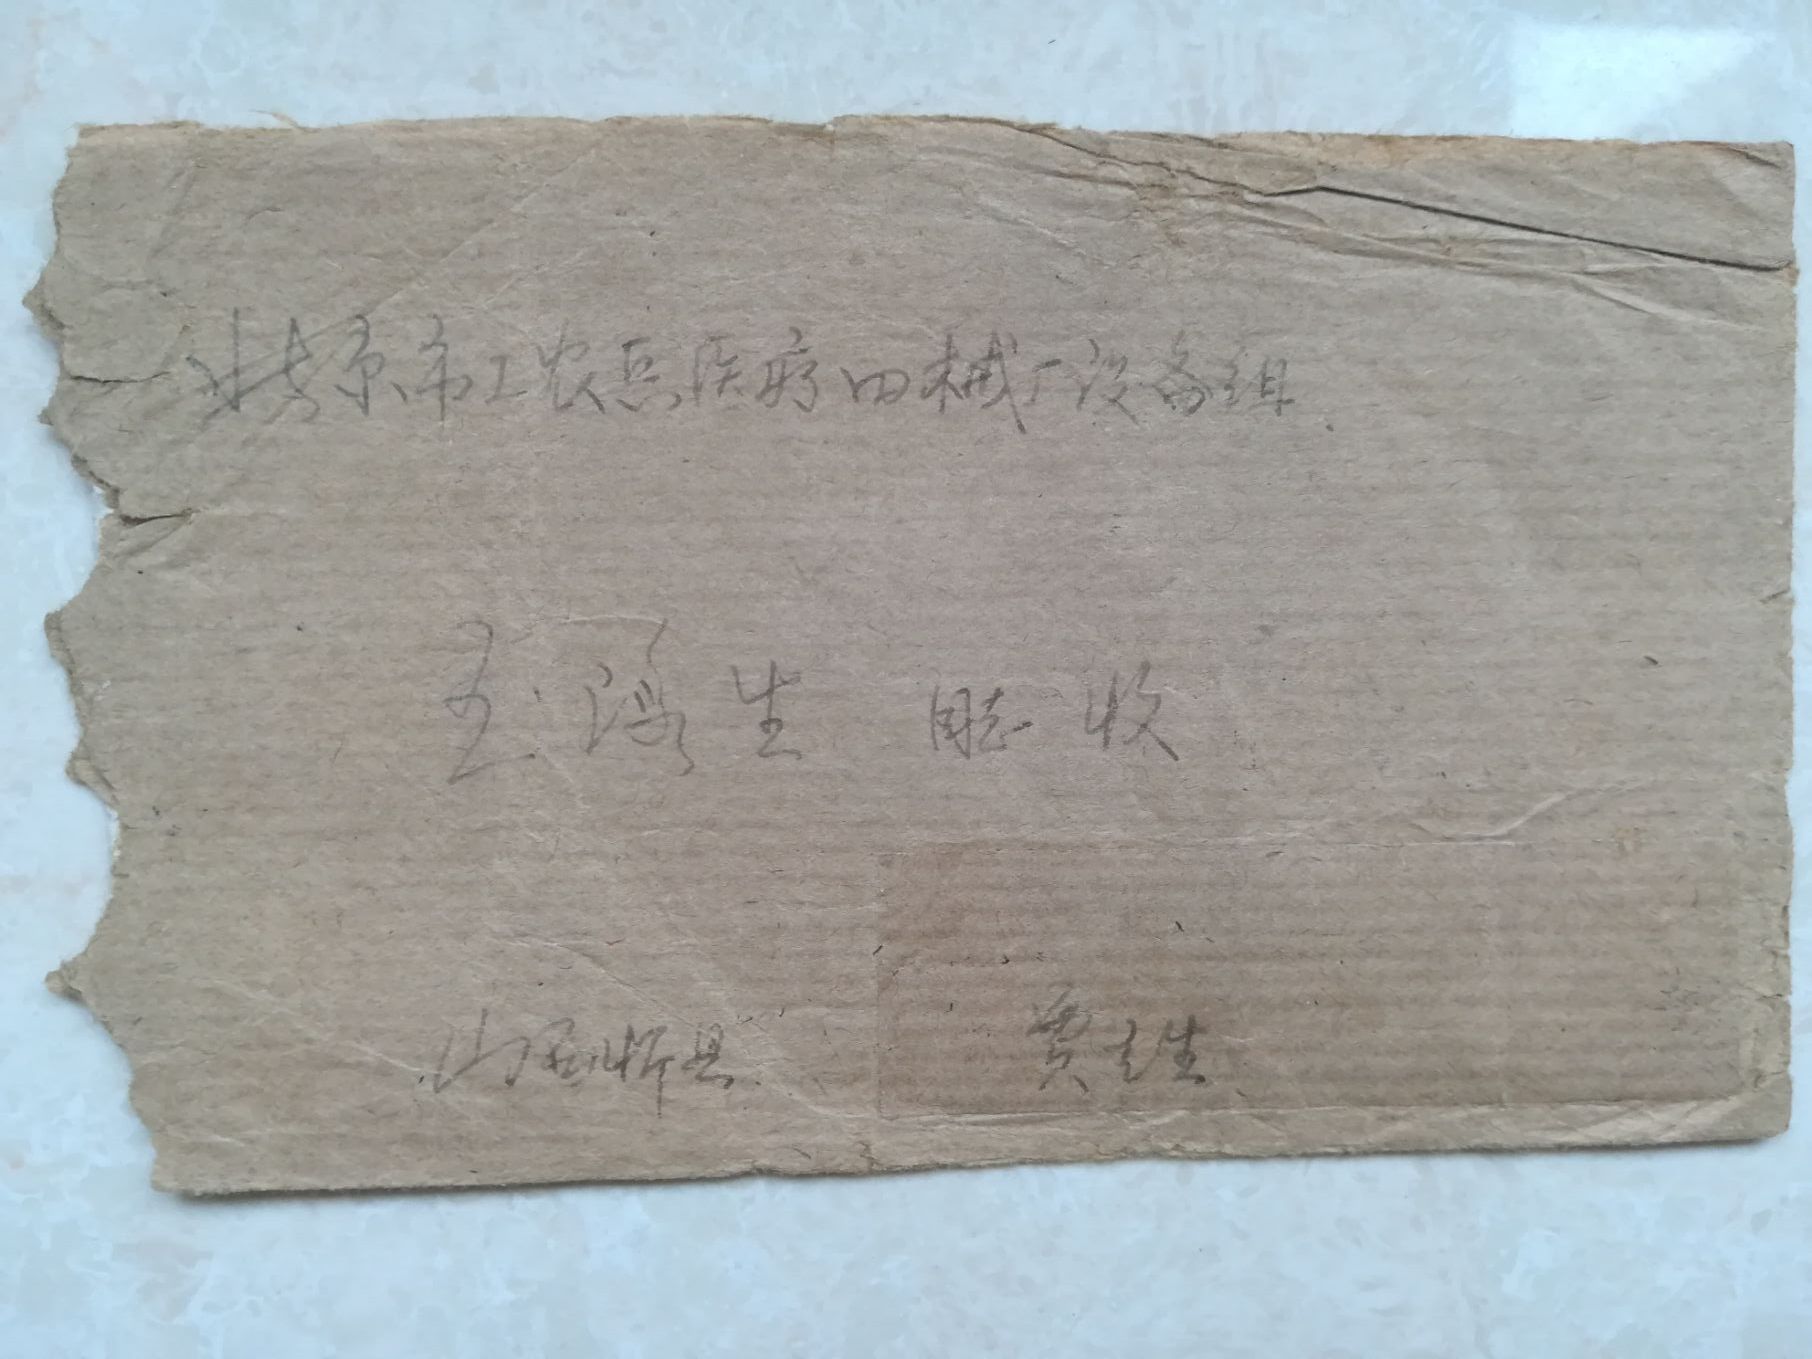 北京市工农兵医疗口械厂设备组
王海生 同志收
山西忻县 贾生